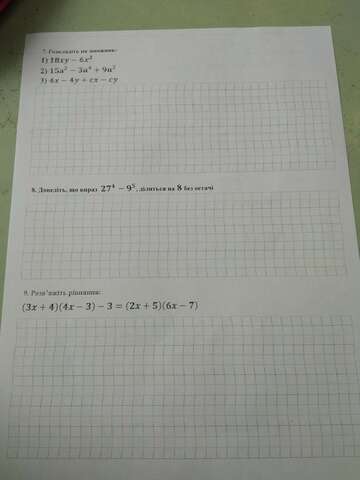 7. Розкладіть на множник:
1) 18xy − 6x²
2) 15a² − 3a⁴ + 9a⁷
3) 4x − 4y + cx − cy
8. Доведіть, що вираз 27⁴ − 9⁵, ділиться на 8 без остачі
9. Розв'яжіть рівняння:
(3x + 4)(4x − 3) − 3 = (2x + 5)(6x − 7)